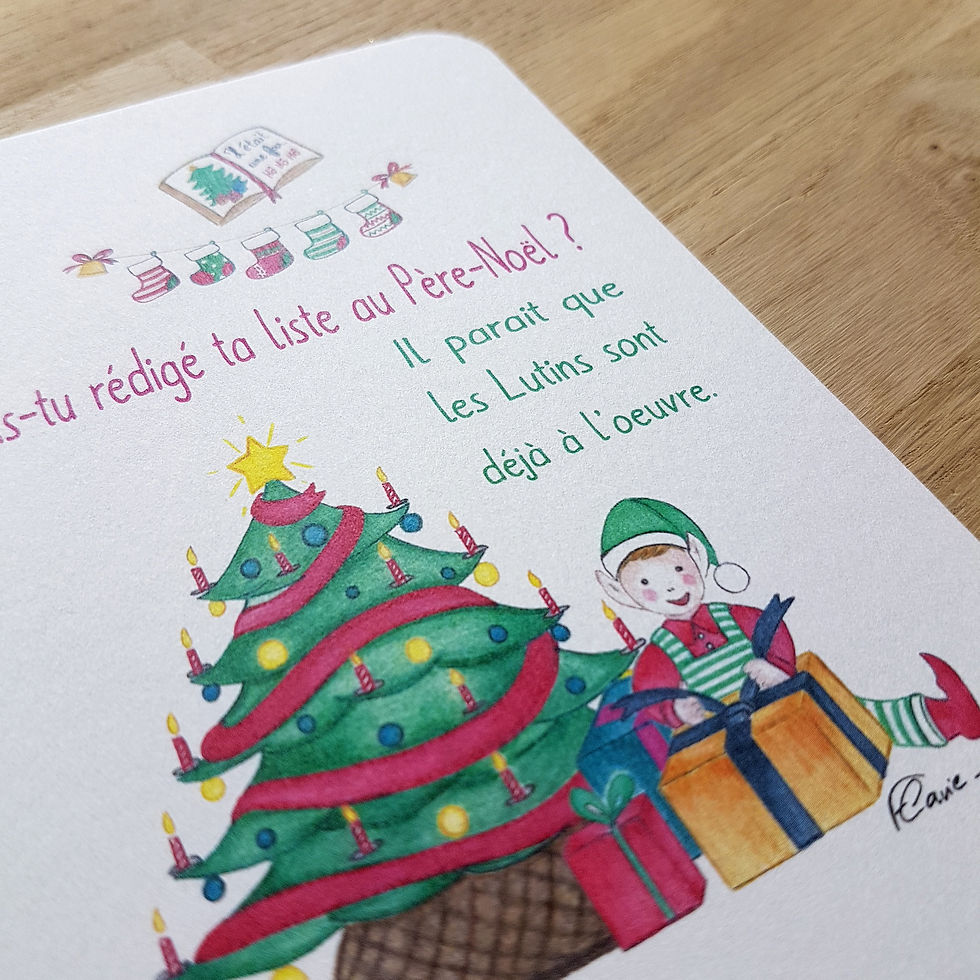 Il était
une fois
HO HO HO
as-tu rédigé ta liste au Père-Noël ?
Il parait que
les Lutins sont
déjà à l'oeuvre.